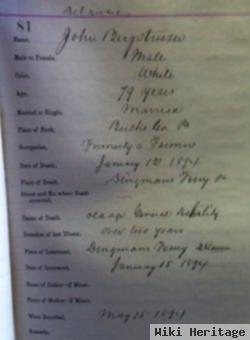 81
Name, John
Male or Female, Male
Color, White
Age, 79 years
Married or Single, Married
Place of Birth, Bucks Co. Pa
Occupation, Formerly a Farmer
Date of Death, January 12, 1894
Place of Death, Dingmans Ferry Pa
Street and No. where Death
occurred,
Cause of Death, old age General Debility
Duration of last Illness, over two years
Place of Interment, Dingmans Ferry
Date of Interment, January 15 1894
Name of Father—if Minor.
Name of Mother—if Minor.
When Recorded, May 15 1894
Remarks,
Wiki Heritage